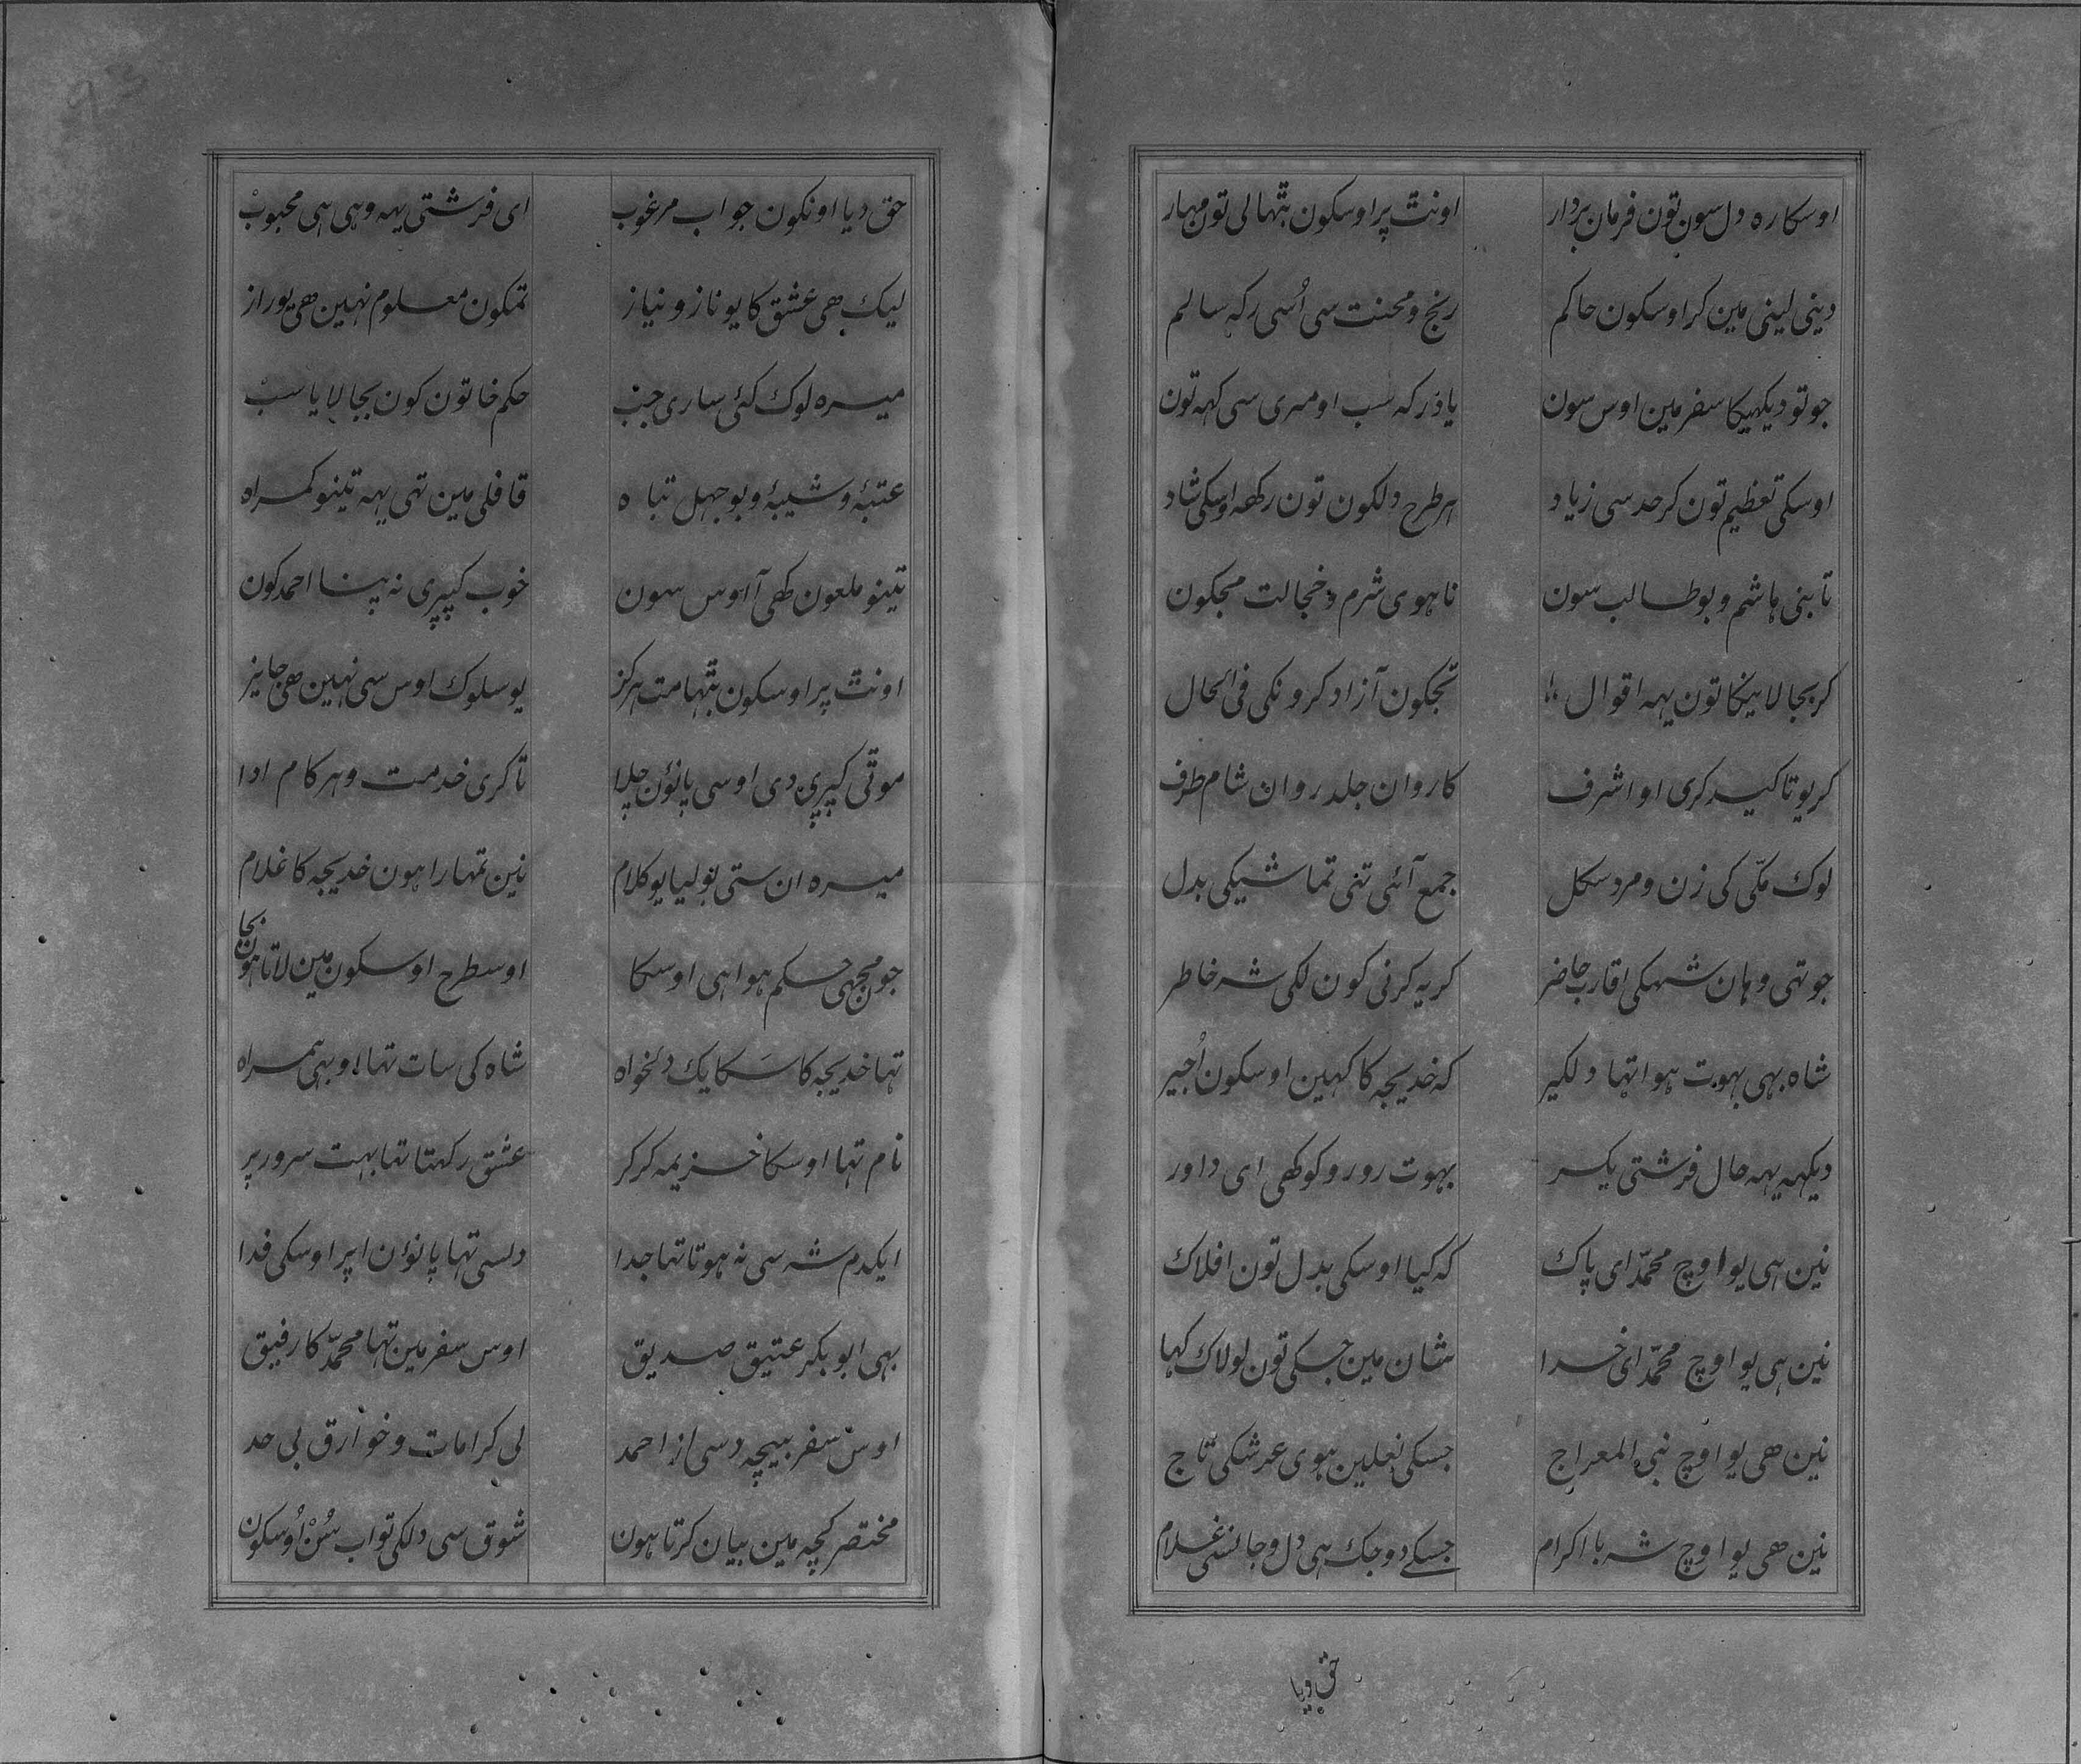 اوسکا رہ دل سون تون فرمان بردار اونٹ پر اوسکون بتہالی تون مہار
دینی لینی مین کر اوسکون حاکم رنج و محنت سی اُسی رکہ سالم
جو تو دیکہیکا سفر مین اوس سون یاد رکہ سب او مری سی کہہ تون
اوسکی تعظیم تون کر حد سی زیاد ہر طرح دلکون تون رکھہ اوسکی شاد
تا بنی ہاشم و بوطالب سون نا ہوی شرم و خجالت مجکون
کر بجا لائیکا تون یہہ اقوال تجکون آزاد کرونکی فی الحال
کر یو تاکید کری او اشرف کاروان جلد روان شام طرف
لوک مکّی کی زن و مرد سکل جمع آئی تہی تماشیکی بدل
جو تہی وہان شہکی اقارب حاضر کریہ کرنی کون لکی شہ خاطر
شاہ بہی بہوت ہوا تہا دلکیر کہ خدیجہ کا کہین اوسکون اُجیر
دیکہہ یہہ حال فرشتی یکسر بہوت رو رو کو کھی ای داور
نین ہی یو اوچ محمّد ای پاک کہ کیا اوسکی بدل تون افلاک
نین ہی یو اوچ محمّد ای خدا شان مین جسکی تون لولاک کہا
نین ھی یو اوچ نبی المعراج جسکی نعلین ہوی عرشکی تاج
نین ھی یو اوچ شہ با اکرام جسکے دو جک ہی دل و جانسی غلام
حق دیا
حق دیا اونکون جواب مرغوب ای فرشتی یہہ وہی ہی محبوب
لیک ھی عشق کا یو ناز و نیاز تمکون معلوم نہین ھی یو راز
میسرہ لوک کئی ساری جب حکم خاتون کون بجا لایا سب
عتبۂ و شیبۂ و بوجہل تباہ قافلی مین تہی یہہ تینو کمراہ
تینو ملعون کھی آ اوس سون خوب کپڑی نہ پنا احمد کون
اونٹ پر اوسکون بتہا مت ہرکز یو سلوک اوس سی نہین ھی جایز
موتی کپڑی دی اوسی پانؤن چلا تا کری خدمت و ہر کام ادا
میسرہ ان ستی بولیا یو کلام نین تمہارا ہون خدیجہ کا غلام
جون مجہی حکم ہوا ہی اوسکا اوسطرح اوسکون مین لاتا ہون بجا
تہا خدیجہ کا سکا یک دلخواہ شاہ کی سات تہا او بہی ہمراہ
نام تہا اوسکا خزیمہ کر کر عشق رکہتا تہا بہت سرور پر
ایکدم شہ سی نہ ہوتا تہا جدا دلسی تہا پانؤن اپر اوسکی فدا
بہی ابوبکر عتیق صدیق اوس سفر مین تہا محمّد کا رفیق
اوس سفر بیچہ دسی از احمد لی کرامات و خوارق بی حد
مختصر کچہ مین بیان کرتا ہون شوق سی دلکی تو اب سُنْ اُوسکون